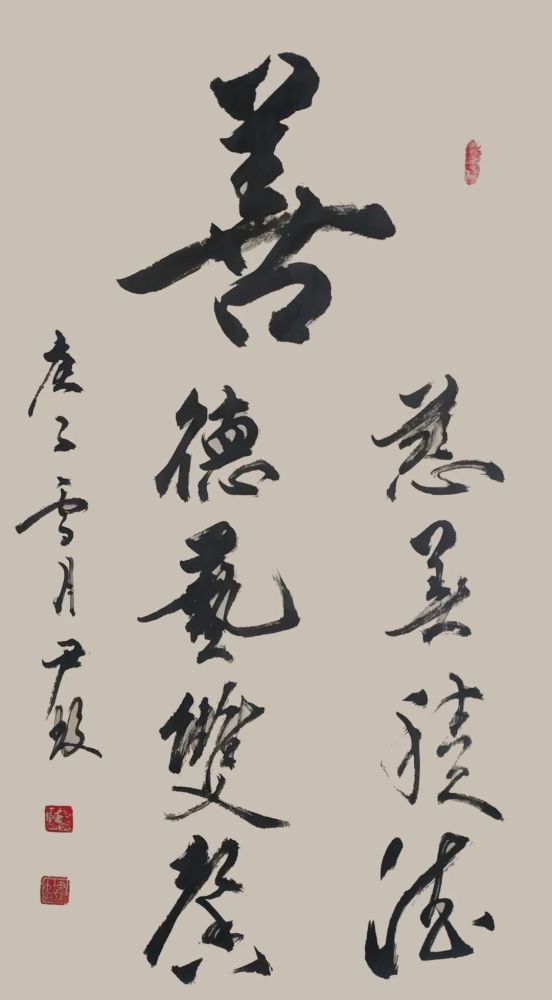 善
慈善積德
德藝雙馨
庚子雪月尹玫